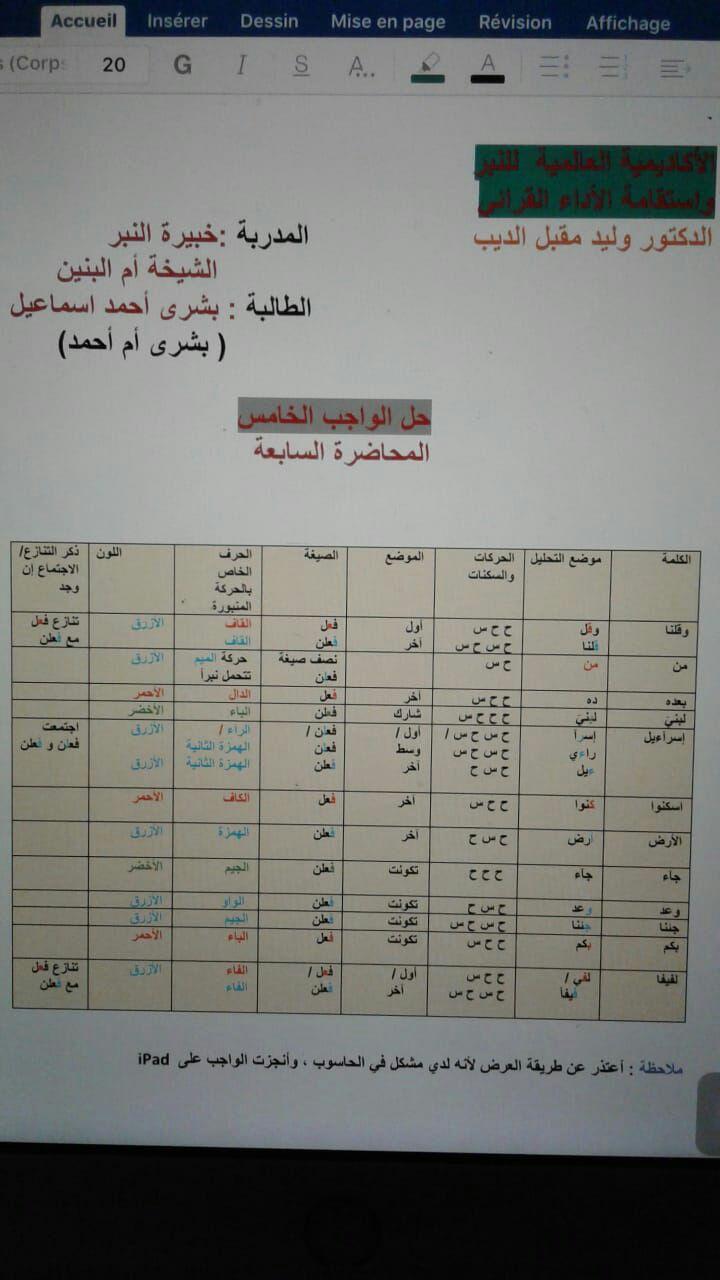 Accueil Insérer Dessin Mise en page Révision Affichage
(Corps 20 G I S A...
الأكاديمية العالمية للنبر
واستقامة الأداء القرآني
الدكتور وليد مقبل الديب
المدربة :خبيرة النبر
الشيخة أم البنين
الطالبة : بشرى أحمد اسماعيل
( بشرى أم أحمد)
حل الواجب الخامس
المحاضرة السابعة
الكلمة موضع التحليل الحركات والسكنات الموضع الصيغة الحرف الخاص بالحركة المنبورة اللون ذكر التنازع/ الاجتماع إن وجد
وقلنا وقل ح ح س أول فعل القاف الأزرق تنازع فعل
قلنا ح س ح س آخر فعلن القاف مع فعلن
من من ح س نصف صيغة حركة الميم الأزرق
فعلن تتحمل نبرا
بعده ده ح ح س آخر فعل الدال الأحمر
لبني لبني ح ح ح س شارك فعلن الباء الأخضر
إسرآءيل إسرا ح س ح س / أول / فعلن / الراء / الأزرق اجتمعت
راءي ح س ح س وسط فعلن الهمزة الثانية فعلن و فعلن
ءيل ح س ح آخر فعلن الهمزة الثانية الأزرق
اسكنوا كنوا ح ح س آخر فعل الكاف الأحمر
الأرض أرض ح س ح آخر فعلن الهمزة الأزرق
جاء جاء ح ح ح تكونت فعلن الجيم الأخضر
وعد وعد ح س ح تكونت فعلن الواو الأزرق
جئنا جئنا ح س ح س تكونت فعلن الجيم الأزرق
بكم بكم ح ح س تكونت فعل الباء الأحمر
لفيفا لفي / ح ح س أول / فعل / الفاء الأزرق تنازع فعل
فيفا ح س ح س آخر فعلن الفاء مع فعلن
ملاحظة : أعتذر عن طريقة العرض لأنه لدي مشكل في الحاسوب ، وأنجزت الواجب على iPad